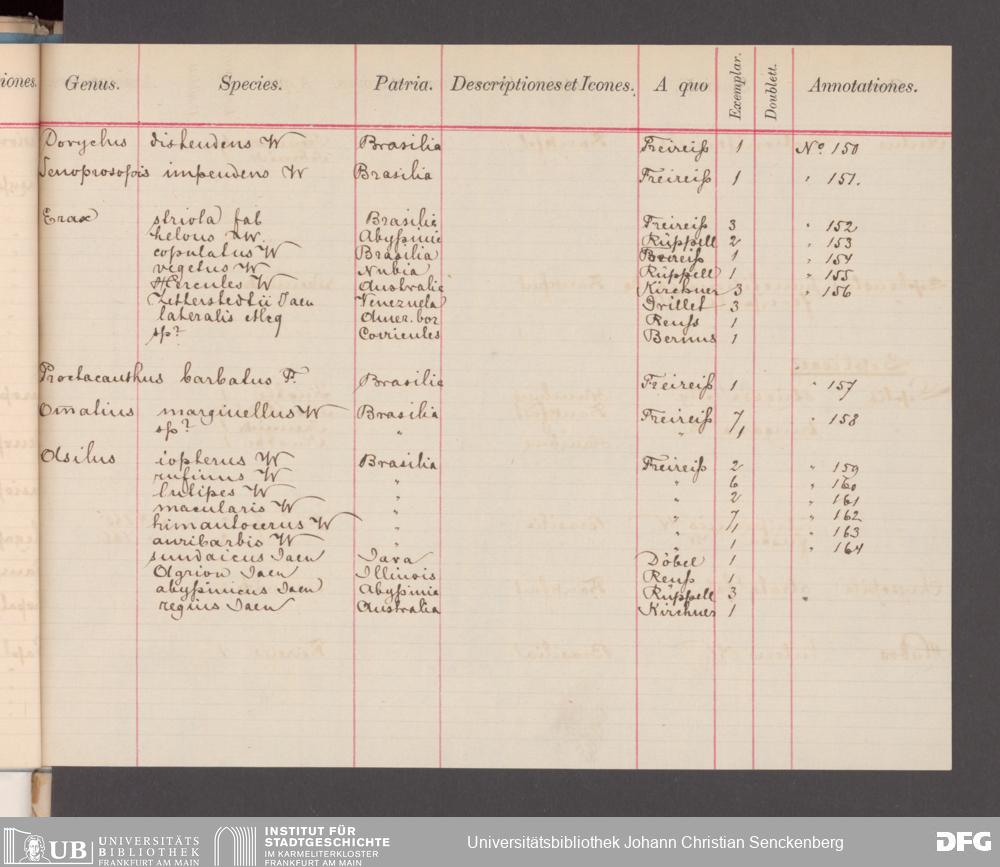 iones.
Genus. Species. Patria. Descriptiones et Icones. A quo Exemplar. Doublett. Annotationes.
Dorychus distendens W Brasilia Freireiß 1 No 150
Senoprosopis impendens W Brasilia Freireiß 1 " 151.
Erax striola fab Brasilia Freireiß 3 " 152
helous W. Abyßinie Rüppell 2 " 153
copulatus W Brasilia Freireiß 1 " 154
vegetus W Nubia Rüppell 1 " 155
Hercules W Australia Kirchner 3 " 156
Zetterstedtii Jaen Venezuela Drillet 3
lateralis Meg Amer. bor Reuß 1
sp? Corrientes Bernus 1
Proctacanthus barbatus F. Brasilia Freireiß 1 " 157
Om̅atius marginellus W Brasilia Freireiß 7 " 158
sp? " " 1
Asilus iopterus W Brasilia Freireiß 2 " 159
rufinus W " " 6 " 160
lutipes W " " 2 " 161
macularis W " " 7 " 162
himantocerus W " " 1 " 163
auribarbis W " " 1 " 164
sundaicus Jaen Java Döbel 1
Agrion Jaen Illinois Reuß 1
abyßinicus Jaen Abyßinia Rüppell 3 "
regius Jaen Australia Kirchner 1
UB UNIVERSITÄTS
BIBLIOTHEK
FRANKFURT AM MAIN
INSTITUT FÜR
STADTGESCHICHTE
IM KARMELITERKLOSTER
FRANKFURT AM MAIN
Universitätsbibliothek Johann Christian Senckenberg
DFG